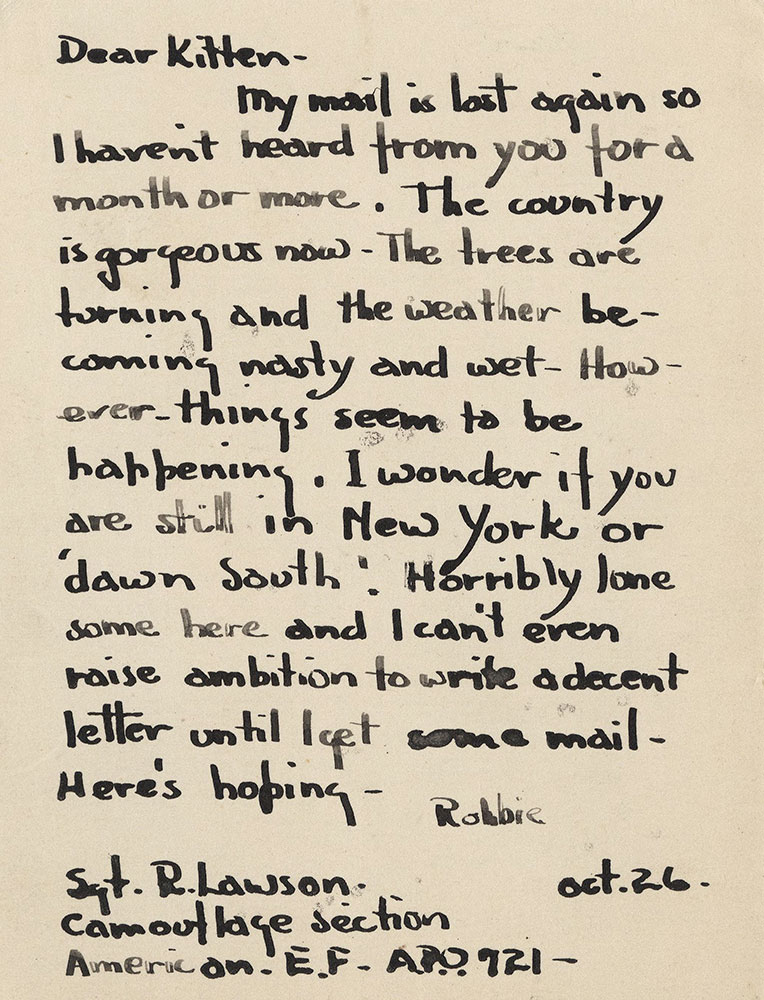 Dear Kitten-
My mail is lost again so
I haven't heard from you for a
month or more. The country
is gorgeous now - The trees are
turning and the weather be-
coming nasty and wet- How-
ever- things seem to be
happening. I wonder if you
are still in New York or
'dawn South'. Horribly lone
some here and I can't even
raise ambition to write a decent
letter until I get some mail-
Here's hoping-
Robbie
Sgt. R. Lawson.
oct. 26.
Camouflage section
American. E.F- A.P.O. 721-